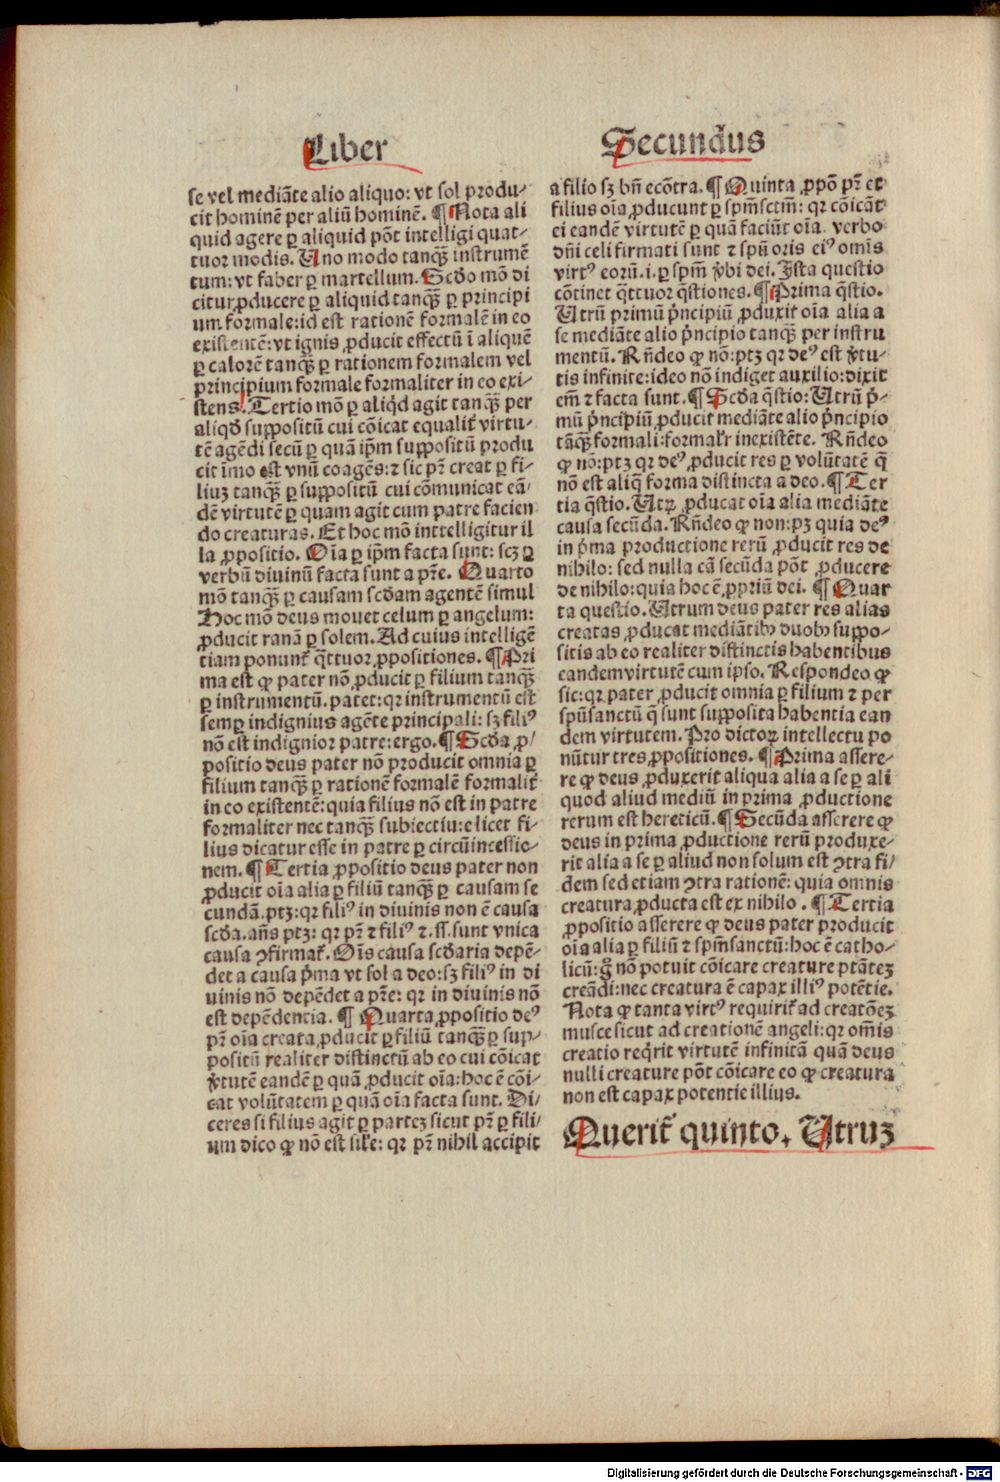 Liber
Secundus
se vel mediāte alio aliquo: vt sol produ-
cit hominē per aliū hominē. ¶ Nota ali
quid agere ꝑ aliquid pōt intelligi quat-
tuor modis. Uno modo tanqȝ̄ instrumē
tum: vt faber ꝑ martellum. Scḋo mō di
citur ꝓducere ꝑ aliquid tanqȝ̄ ꝑ principi
um formale: id est rationē formalē in eo
existentē: vt ignis ꝓducit effectū ī aliquē
ꝑ calorē tanqȝ̄ ꝑ rationem formalem vel
principium formale formaliter in eo exi-
stens. Tertio mō ꝑ aliqḋ agit tanqȝ̄ per
aliqḋ suppositū cui cōicat equalit̄ virtu-
tē agēdi secū ꝑ quā ip̄m suppositū produ
cit īmo est vnū coagēs: ⁊ sic pr̄ creat ꝑ fi-
liuȝ tanqȝ̄ ꝑ suppositū cui cōmunicat eā-
dē virtutē ꝑ quam agit cum patre facien
do creaturas. Et hoc mō inttelligitur il
la ꝓpositio. Oīa ꝑ ip̄m facta sunt: scȝ ꝑ
verbū diuinū facta sunt a pr̄e. Quarto
mō tanqȝ̄ ꝑ causam scḋam agentē simul
Hoc mō deus mouet celum ꝑ angelum:
ꝓducit ranā ꝑ solem. Ad cuius intelligē
tiam ponunt̄ q̄ttuor ꝓpositiones. ¶ Pri
ma est ꝙ pater nō ꝓducit ꝑ filium tanqȝ̄
ꝑ instrumentū. patet: qr instrumentū est
semꝑ indignius agēte principali: sȝ filiꝰ
nō est indignior patre: ergo. ¶ Scḋa ꝓ-
positio deus pater nō producit omnia ꝑ
filium tanqȝ̄ ꝑ rationē formalē formalit̄
in eo existentē: quia filius nō est in patre
formaliter nec tanqȝ̄ subiectiu: e licet fi-
lius dicatur esse in patre ꝑ circūincessio-
nem. ¶ Tertia ꝓpositio deus pater non
ꝓducit oīa alia ꝑ filiū tanqȝ̄ ꝑ causam se
cundā. ptȝ: qr filiꝰ in diuinis non ē causa
scḋa. an̄s ptȝ: qr pr̄ ⁊ filiꝰ ⁊. ss. sunt vnica
causa ↄfirmat̄. Oīs causa scḋaria depē-
det a causa p̄ma vt sol a deo: sȝ filiꝰ in di
uinis nō depēdet a pr̄e: qr in diuinis nō
est depēdentia. ¶ Quarta ꝓpositio deꝰ
pr̄ oīa creata ꝓducit ꝑ filiū tanqȝ̄ ꝑ sup-
positū realiter distinctū ab eo cui cōicat
v̄tutē eandē ꝑ quā ꝓducit oīa: hoc ē cōi-
cat volūtatem ꝑ quā oīa facta sunt. Di-
ceres si filius agit ꝑ parteȝ sicut pr̄ ꝑ fili-
um dico ꝙ nō est sil̄e: qr pr̄ nihil accipit
a filio sȝ bn̄ ecōtra. ¶ Quinta ꝓpō pr̄ et
filius oīa ꝓducunt ꝑ spm̄sctm̄: qr cōicāt
ei eandē virtutē ꝑ quā faciūt oīa. verbo
dn̄i celi firmati sunt ⁊ spū oris eiꝰ omīs
virtꝰ eorū. i. ꝑ spm̄ v̄bi dei. Ista questio
cōtinet q̄ttuor q̄stiones. ¶ Prima q̄stio.
Utrū primū p̄ncipiū ꝓduxit oīa alia a
se mediāte alio p̄ncipio tanqȝ̄ per instru
mentū. Rn̄deo ꝙ nō: ptȝ qr deꝰ est v̄tu-
tis infinite: ideo nō indiget auxilio: dixit
em̄ ⁊ facta sunt. ¶ Scḋa q̄stio: Utrū p̄-
mū p̄ncipiū ꝓducit mediāte alio p̄ncipio
tāqȝ̄ formali: formal̄r inexistēte. Rn̄deo
ꝙ nō: ptȝ qr deꝰ ꝓducit res ꝑ volūtatē q̄
nō est aliq̄ forma distincta a deo. ¶ Ter
tia q̄stio. Utꝝ ꝓducat oīa alia mediāte
causa secūda. Rn̄deo ꝙ non: pȝ quia deꝰ
in p̄ma productione rerū ꝓducit res de
nihilo: sed nulla cā secūda pōt ꝓducere
de nihilo: quia hoc ē ꝓpriū dei. ¶ Quar
ta questio. Utrum deus pater res alias
creatas ꝓducat mediātibꝫ duobꝫ suppo-
sitis ab eo realiter distinctis habentibus
eandem virtutē cum ipso. Respondeo ꝙ
sic: qr pater ꝓducit omnia ꝑ filium ⁊ per
spūsanctū q̄ sunt supposita habentia ean
dem virtutem. Pro dictoꝝ intellectu po
nūtur tres ꝓpositiones. ¶ Prima assere-
re ꝙ deus ꝓduxerit aliqua alia a se ꝑ ali
quod aliud mediū in prima ꝓductione
rerum est hereticū. ¶ Secūda asserere ꝙ
deus in prima ꝓductione rerū produxe-
rit alia a se ꝑ aliud non solum est ↄtra fi-
dem sed etiam ↄtra rationē: quia omnis
creatura ꝓducta est ex nihilo. ¶ Tertia
ꝓpositio asserere ꝙ deus pater producit
oīa alia ꝑ filiū ⁊ spm̄sanctū: hoc ē catho-
licū: g̊ nō potuit cōicare creature ptāteȝ
creādi: nec creatura ē capax illiꝰ potētie.
Nota ꝙ tanta virtꝰ requirit̄ ad creatōeȝ
musce sicut ad creationē angeli: qr om̄is
creatio req̄rit virtutē infinitā quā deus
nulli creature pōt cōicare eo ꝙ creatura
non est capax potentie illius.
Querit̄ quinto. Utruȝ
Digitalisierung gefördert durch die Deutsche Forschungsgemeinschaft - DFG